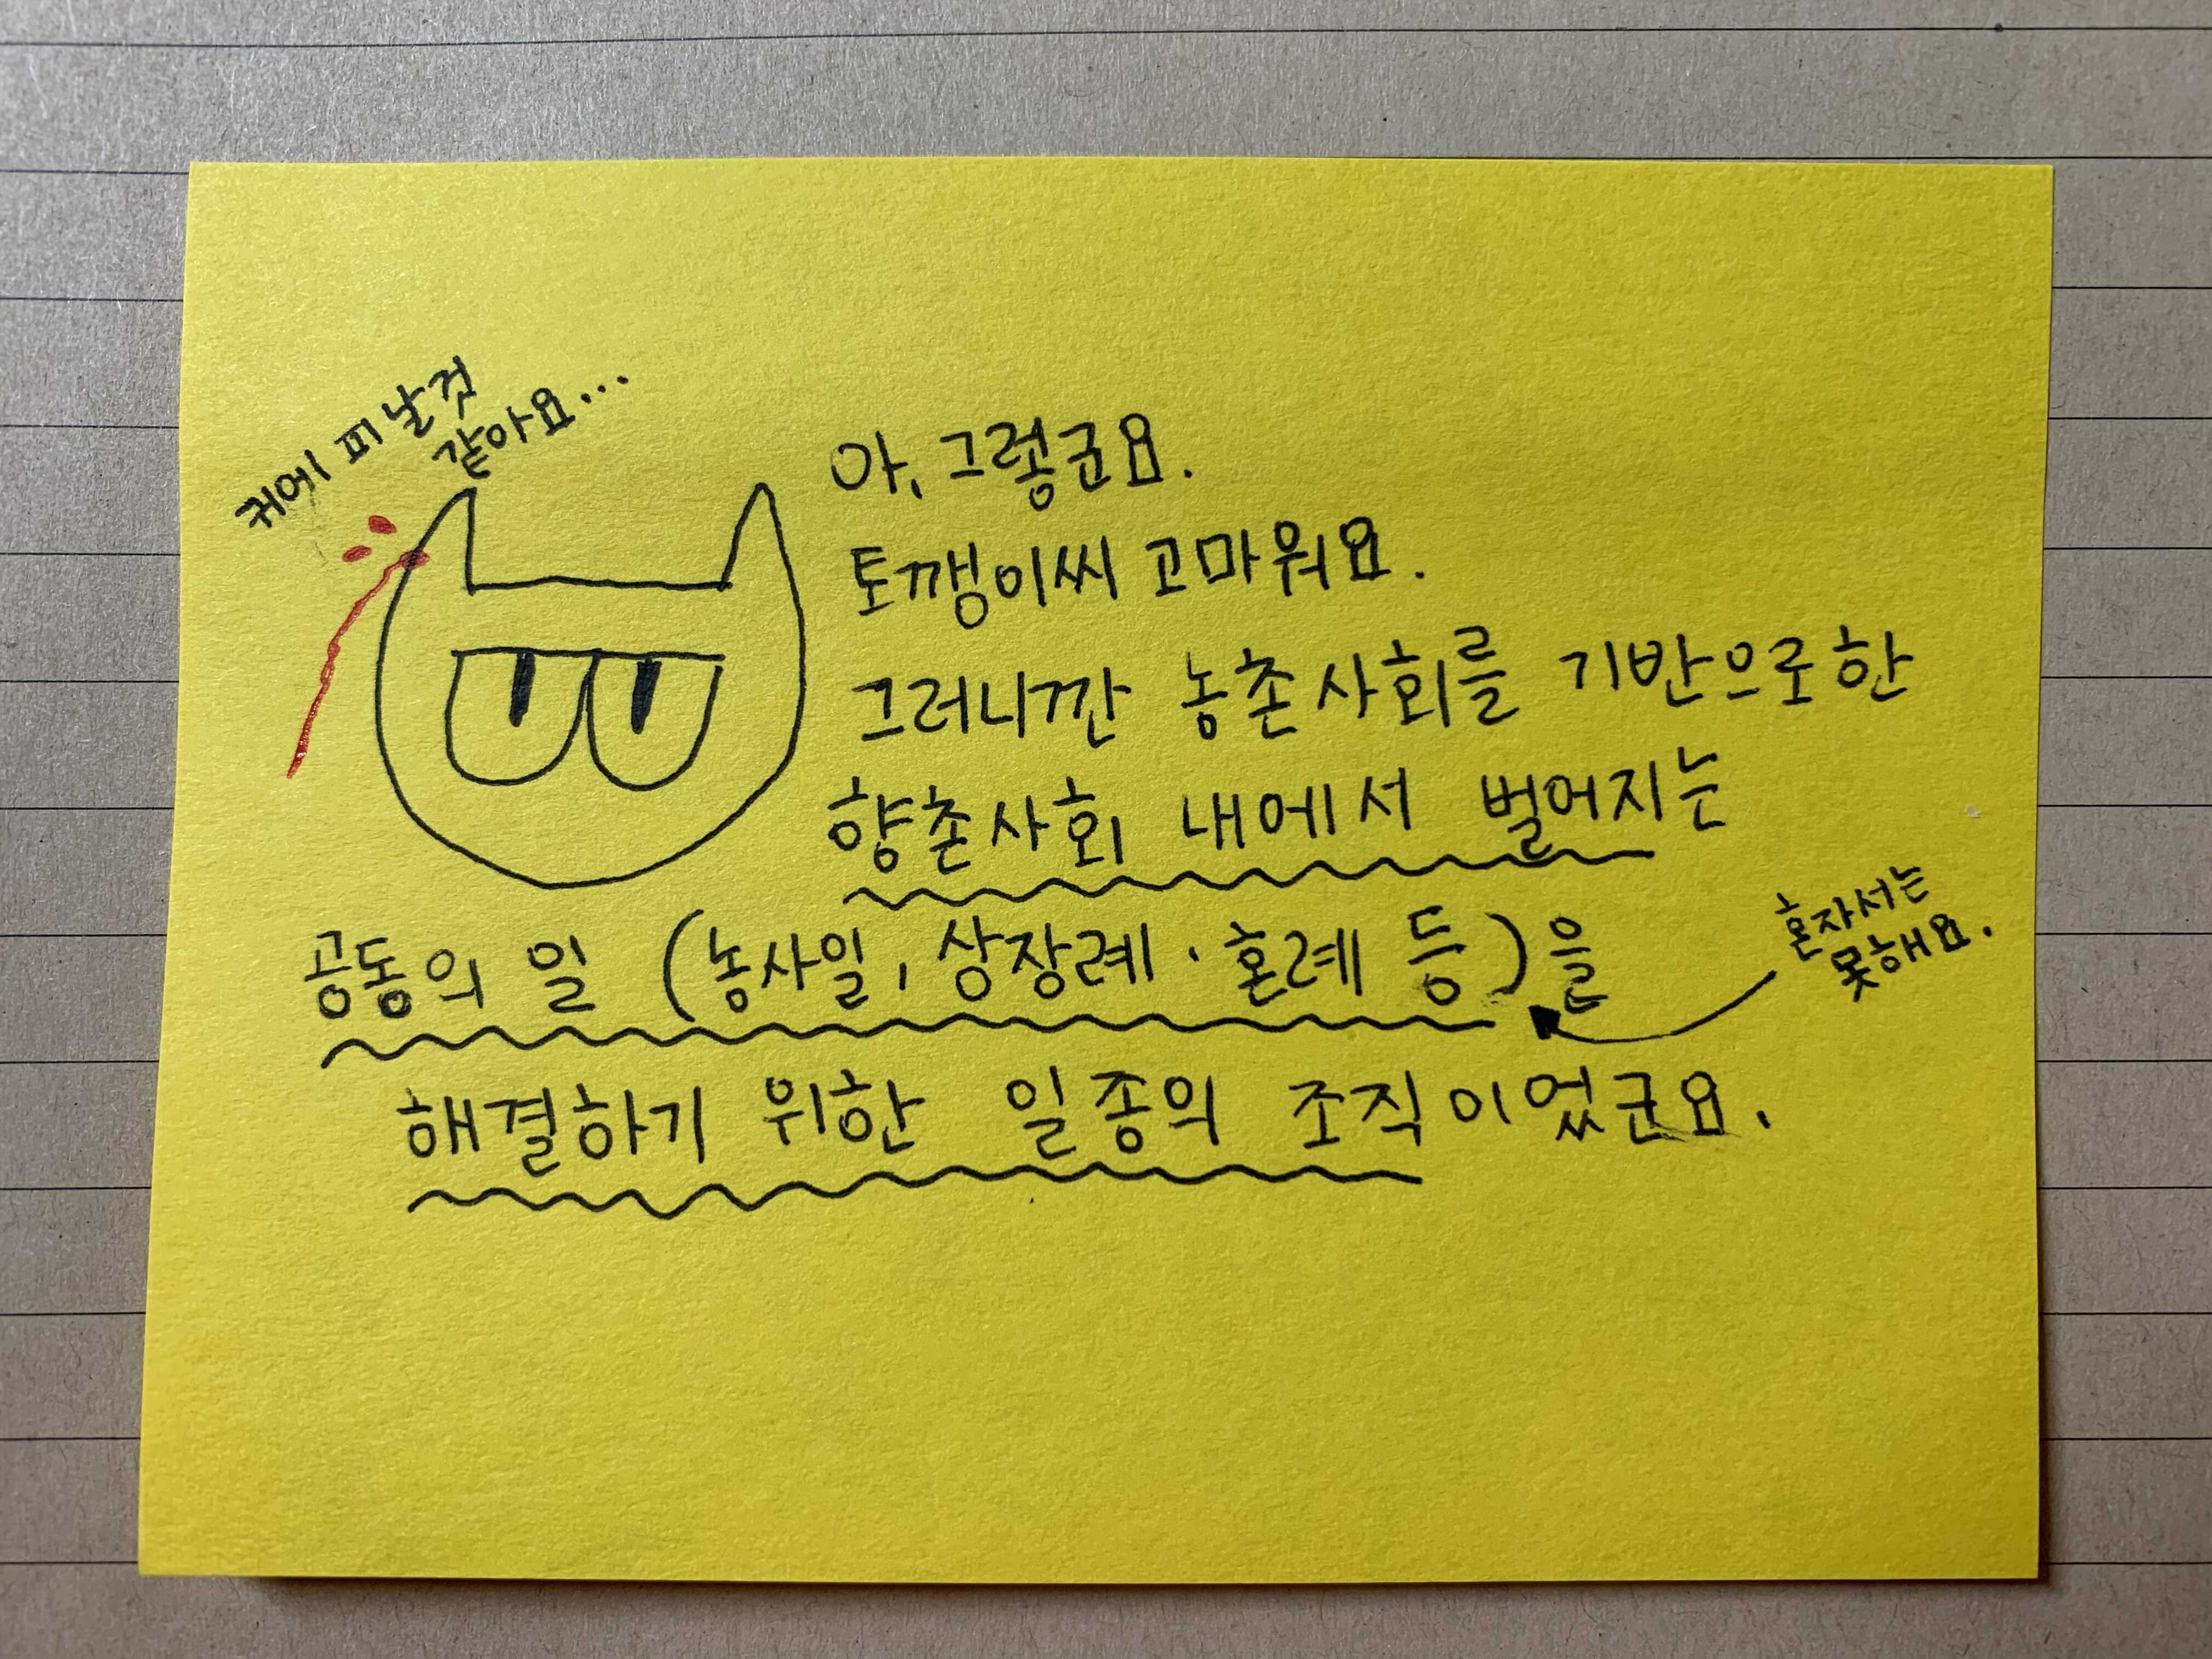 귀에 피 날것
같아요...
아, 그렇군요.
토깽이씨 고마워요.
그러니깐 농촌사회를 기반으로한
향촌사회 내에서 벌어지는
공동의 일 (농사일, 상장례·혼례 등)을
혼자서는
못해요.
해결하기 위한 일종의 조직이었군요.